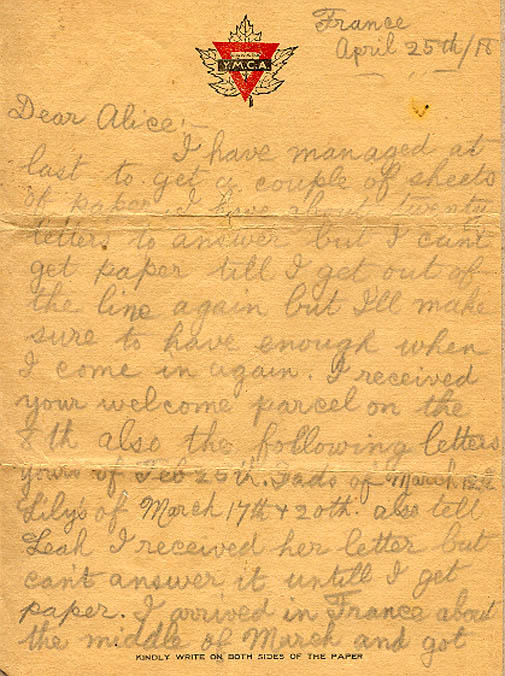 France
April 25th/18
CANADIAN
Y.M.C.A.
Dear Alice:-
I have managed at
last to get a couple of sheets
of paper. I have about twenty
letters to answer but I can't
get paper till I get out of
the line again but I'll make
sure to have enough when
I come in again. I received
your welcome parcel on the
8th also the following letters
yours of Feb 25th. Dads of March
Lily's of March 17th + 20th. also tell
Leah I received her letter but
can't answer it untill I get
paper. I arrived in France about
the middle of March and got
KINDLY WRITE ON BOTH SIDES OF THE PAPER